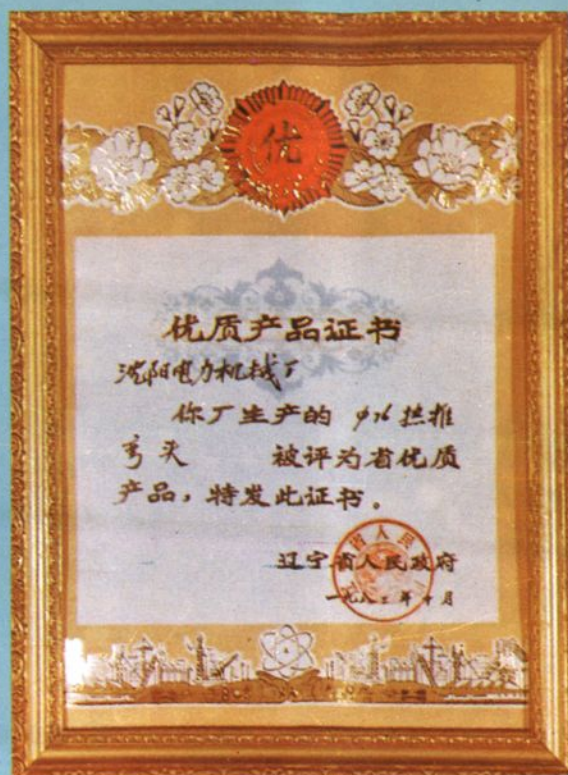 优
优质产品证书
沈阳电力机械厂
你厂生产的 φ76 热推
弯头 被评为省优质
产品，特发此证书。
省人民
辽宁省人民政府
年十月